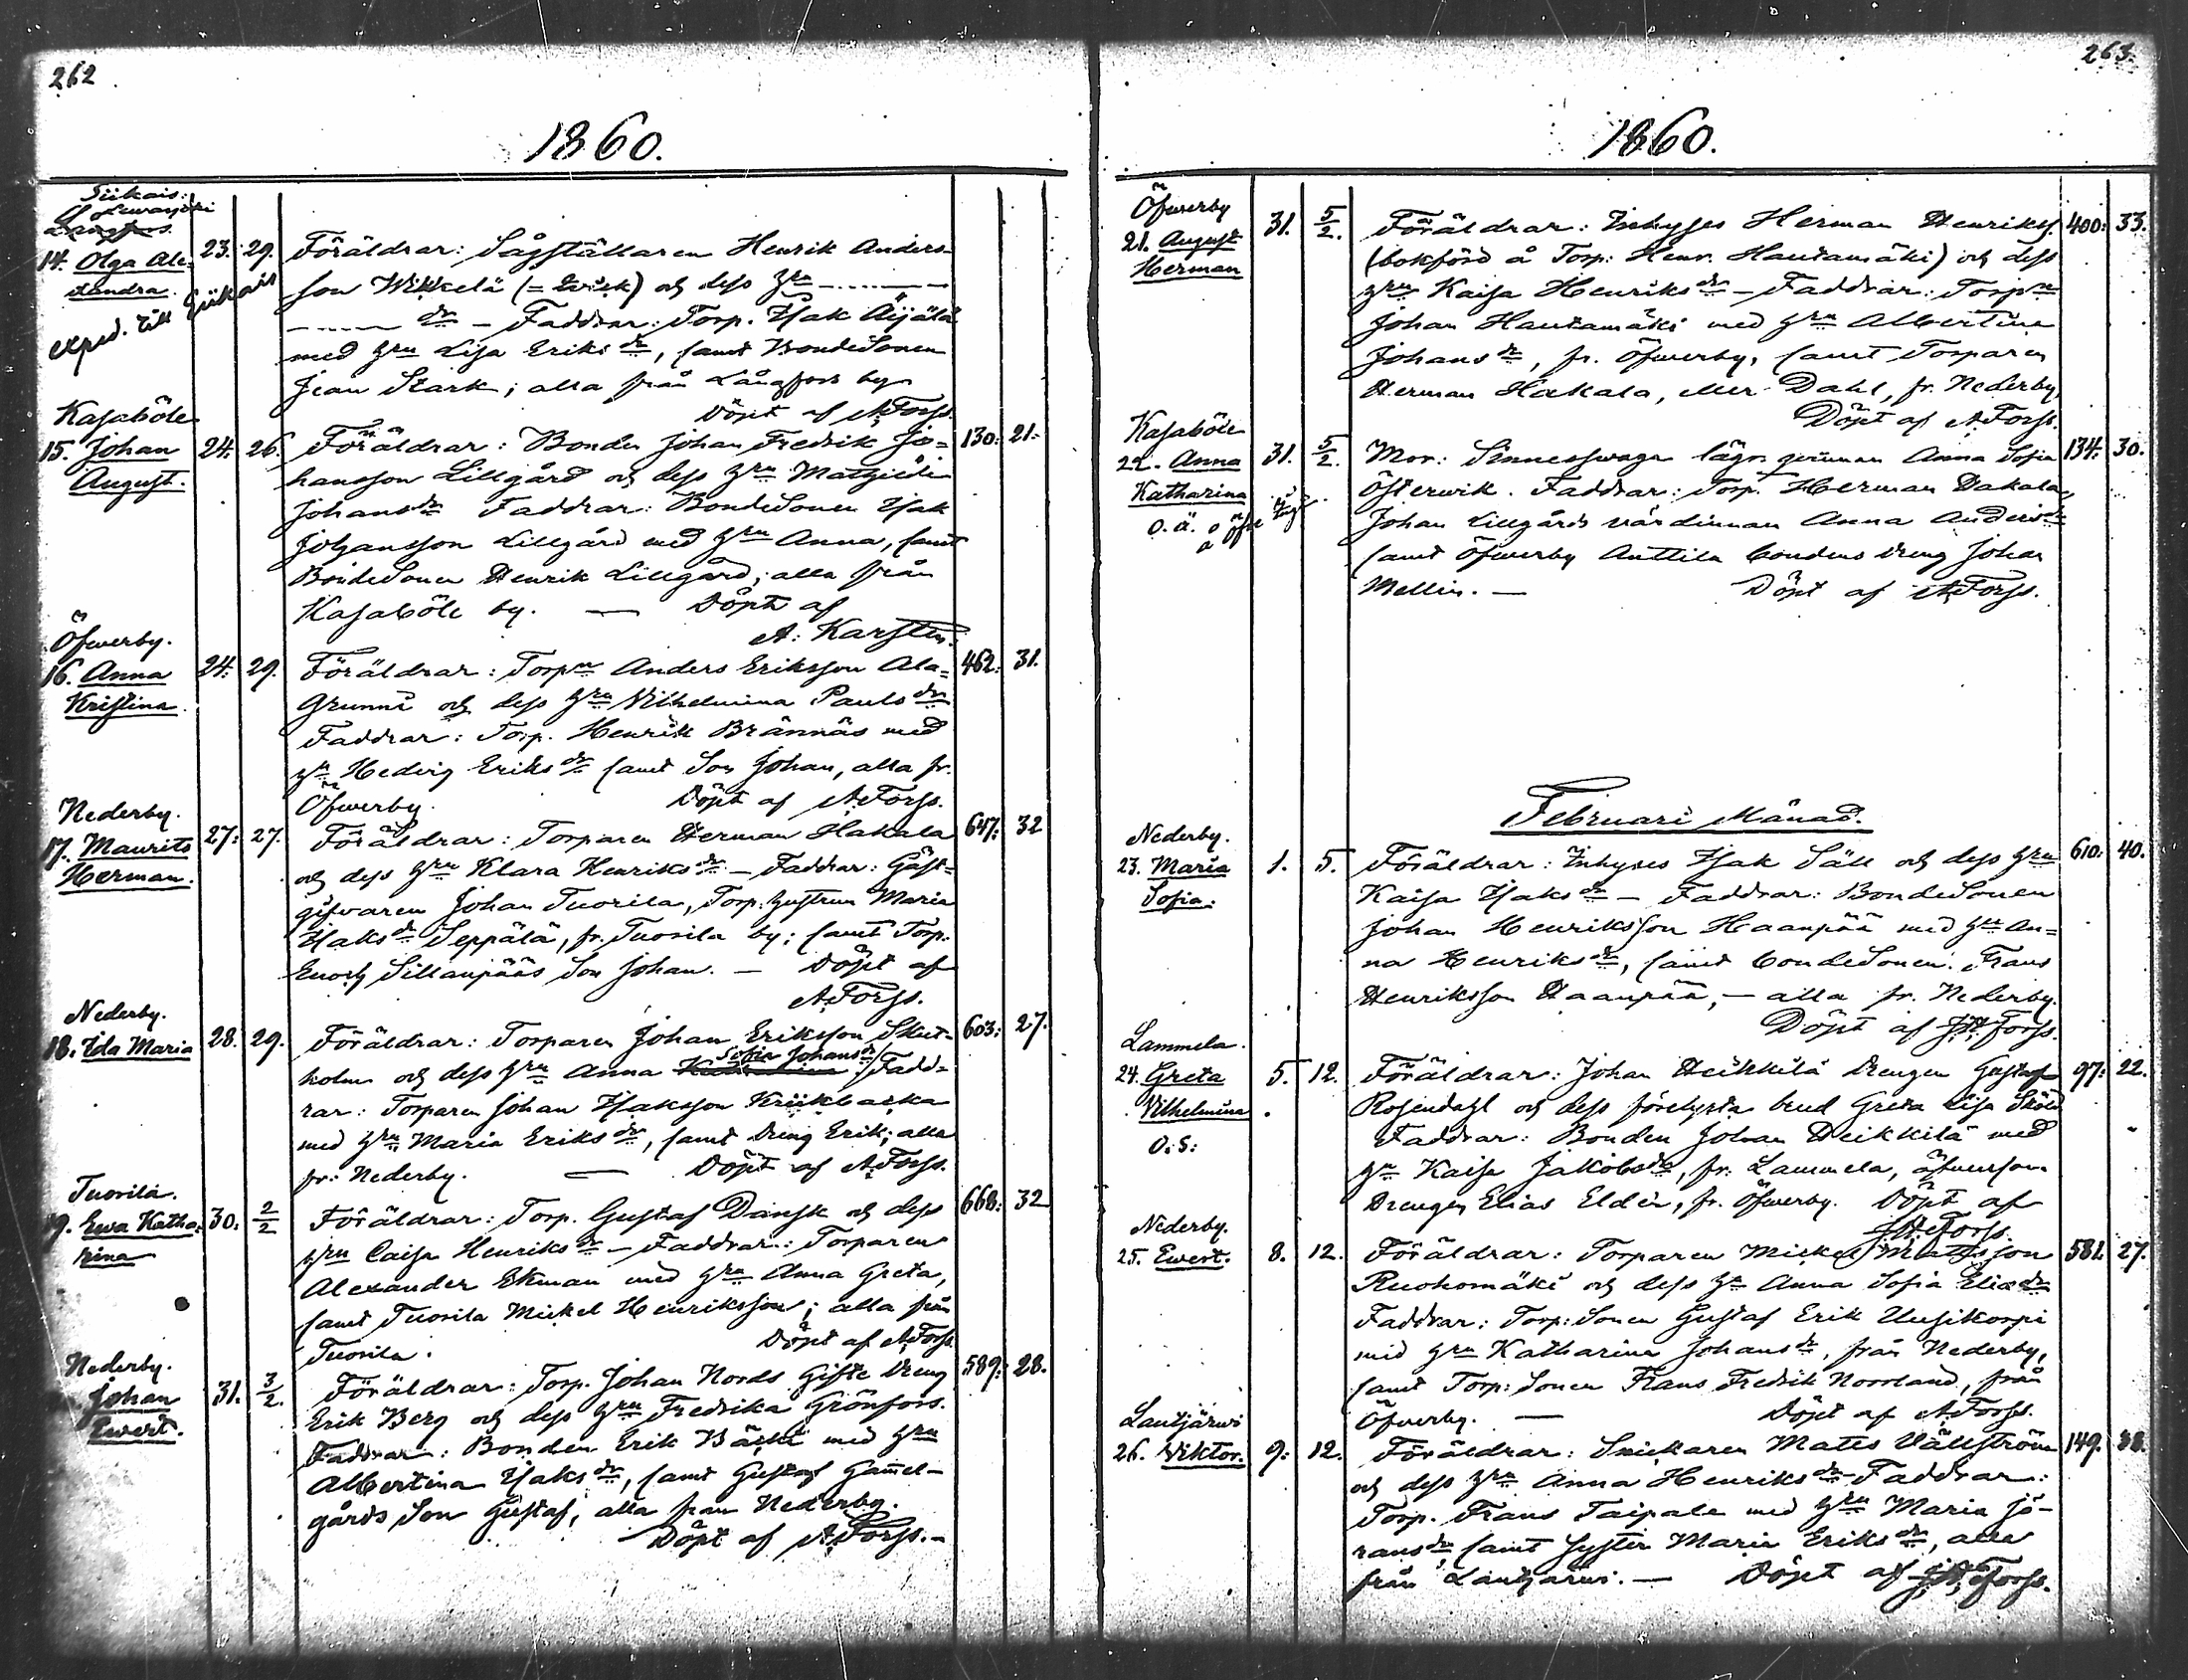 262
1860.
Siikais:
Leväsjoki
Långfors
14. Olga Ale-
xandra.
exped. till Siikais
23. 29.
Föräldrar: Sågställaren Henrik Anders-
son Wikkelä (= ) och dess hru
dr – Faddrar: Torp. Isak Äijälä
med hru Lisa Eriksdr, samt Bondesonen
Jean Stark; alla från Långfors by
Döpt af A.Forss.
Kasaböle
15. Johan
August.
24. 26.
Föräldrar: Bonden Johan Fredrik Jo=
hansson Lillgård och dess hru Mathilda
Johansdr Faddrar: Bondesonen Isak
Johansson Lillgård med hru Anna, samt
Bondesonen Henrik Lillgård; alla från
Kasaböle by. — Döpt af
A. Karsten.
130: 21.
Öfverby.
16. Anna
Kristina.
24. 29.
Föräldrar: Torpn Anders Eriksson Ala=
Grunni och dess hru Vilhelmina Paulsdr
Faddrar: Torp. Henrik Brännäs med
hr Hedvig Eriksdr samt Son Johan, alla fr.
Öfverby. Döpt af A.Forss.
462: 31.
Nederby.
17. Maurits
Herman.
27: 27.
Föräldrar: Torparen Herman Hakala
och dess hru Klara Henriksdr – Faddrar: Gäst=
gifvaren Johan Tuorila, Torp: hustrun Maria
Isaksdr Seppälä, fr. Tuorila by; samt Torp.
Enoch Sillanpääs Son Johan. — Döpt af
A.Forss.
647: 32
Nederby.
18. Ida Maria
28. 29.
Föräldrar: Torparen Johan Eriksson Skut-
Sofia Johansdr
holm och dess hru Anna Fadd=
rar: Torparen Johan Isaksson Kriikbacka
med hru Maria Eriksdr, samt Dreng Erik; alla
fr: Nederby. — Döpt af A.Forss.
603: 27.
Tuorila.
19. Ewa Katha-
rina
30. 2/2
Föräldrar: Torp. Gustaf Dansk och dess
hru Caisa Henriksdr – Faddrar: Torparen
Alexander Ekman med hru Anna Greta,
samt Tuorila Mickel Henriksson; alla från
Tuorila. Döpt af A.Forss.
668: 32
Nederby.
Johan
Ewert.
31. 3/2.
Föräldrar: Torp. Johan Nords Gifte Dreng
Erik Berg och dess hru Fredrika Grönfors.
Faddrar: Bonden Erik Bäski med hru
Albertina Isaksdr, samt Gustaf Gam̄el-
gårds Son Gustaf, alla från Nederby.
Döpt af A.Forss.–
589: 28.
263.
1860.
Öfverby
21. August
Herman
31. 5/2.
Föräldrar: Inhyses Herman Henrikss.
(bokförd å Torp: Henr. Hautamäki) och dess
hru Kaisa Henriksdr – Faddrar: Torpn
Johan Hautamäki med hru Albertina
Johansdr, fr. Öfverby, samt Torparen
Herman Hakala, eller Dahl, fr. Nederby
Döpt af A.Forss.
400: 33.
Kasaböle
22. Anna
Katharina
o.ä.
31. 5/2.
Mor: Sinnessvaga lägr. qvinnan Anna Sofia
Österwik. Faddrar: Torp. Herman Dakala,
Johan Lillgårds värdinnan Anna Andersdr
samt Öfverby Anttila bondens dreng Johan
Mellin. — Döpt af A.Forss.
134. 30.
Februari Månad.
Nederby.
23. Maria
Sofia.
1. 5.
Föräldrar: Inhyses Isak Säll och dess hru
Kaisa Isaksdr – Faddrar: Bondesonen
Johan Henriksson Haanpää med hru An=
na Henriksdr, samt bondesonen Frans
Henriksson Haanpää, – alla fr. Nederby.
Döpt af Forss.
610: 40.
Lammela.
24. Greta
Vilhelmina
O.S:
5. 12.
Föräldrar: Johan Heikkilä Drengen Gustaf
Rosendahl och dess förelysta brud Greta Lisa Sköld
Faddrar: Bonden Johan Heikkilä med
hru Kaisa Jakobsdr, fr. Lammela, äfvensom
Drengen Elias Eldèn, fr. Öfverby. Döpt af
Forss.
97: 22.
Nederby.
25. Ewert.
8. 12.
Föräldrar: Torparen Mickel Mattsson
Ruohomäki och dess hr Anna Sofia Eliasdr
Faddrar: Torp: Sonen Gustaf Erik Uusikorpi
med hru Katharina Johansdr, från Nederby,
samt Torp: Sonen Frans Fredrik Norrland, från
Öfverby. — Döpt af A.Forss.
581. 27.
Lautjärwi
26. Viktor.
9. 12.
Föräldrar: Snickaren Matts Vällström
och dess hru Anna Henriksdr – Faddrar:
Torp. Frans Taipale med hru Maria Jö-
ransdr, samt Syster Maria Eriksdr, alla
från Lautjärwi. — Döpt af Forss.
149. 38.